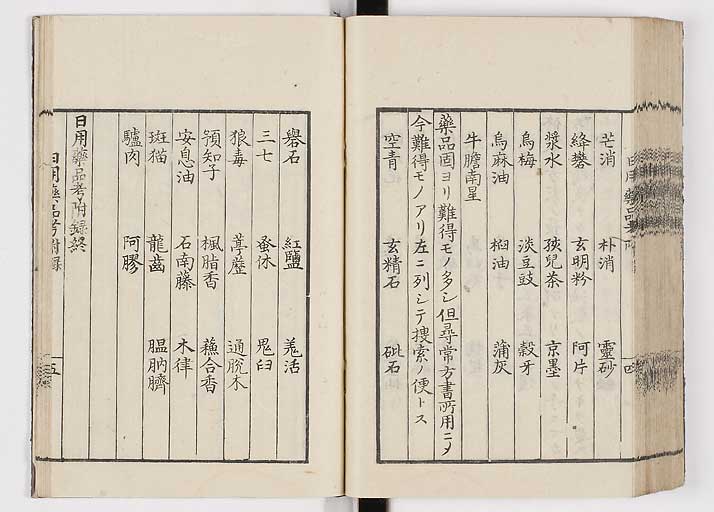 芒消 朴消 靈砂
絳礬 玄明粉 阿片
漿水 孩兒茶 京墨
烏梅 淡豆豉 穀牙
烏麻油 桕油 蒲灰
牛膽南星
藥品固ヨリ難得モノ多シ但尋常方書所用ニメ
今難得モノアリ左ニ列シテ捜索ノ便トス
空青 玄精石 砒石
礜石 紅鹽 羗活
三七 蚤休 鬼臼
狼毒 葶藶 通脫木
預知子 楓脂香 蘓合香
安息油 石南藤 木律
斑猫 龍齒 膃肭臍
驢肉 阿膠
日用藥品考附録終
日用藥品考附録 五